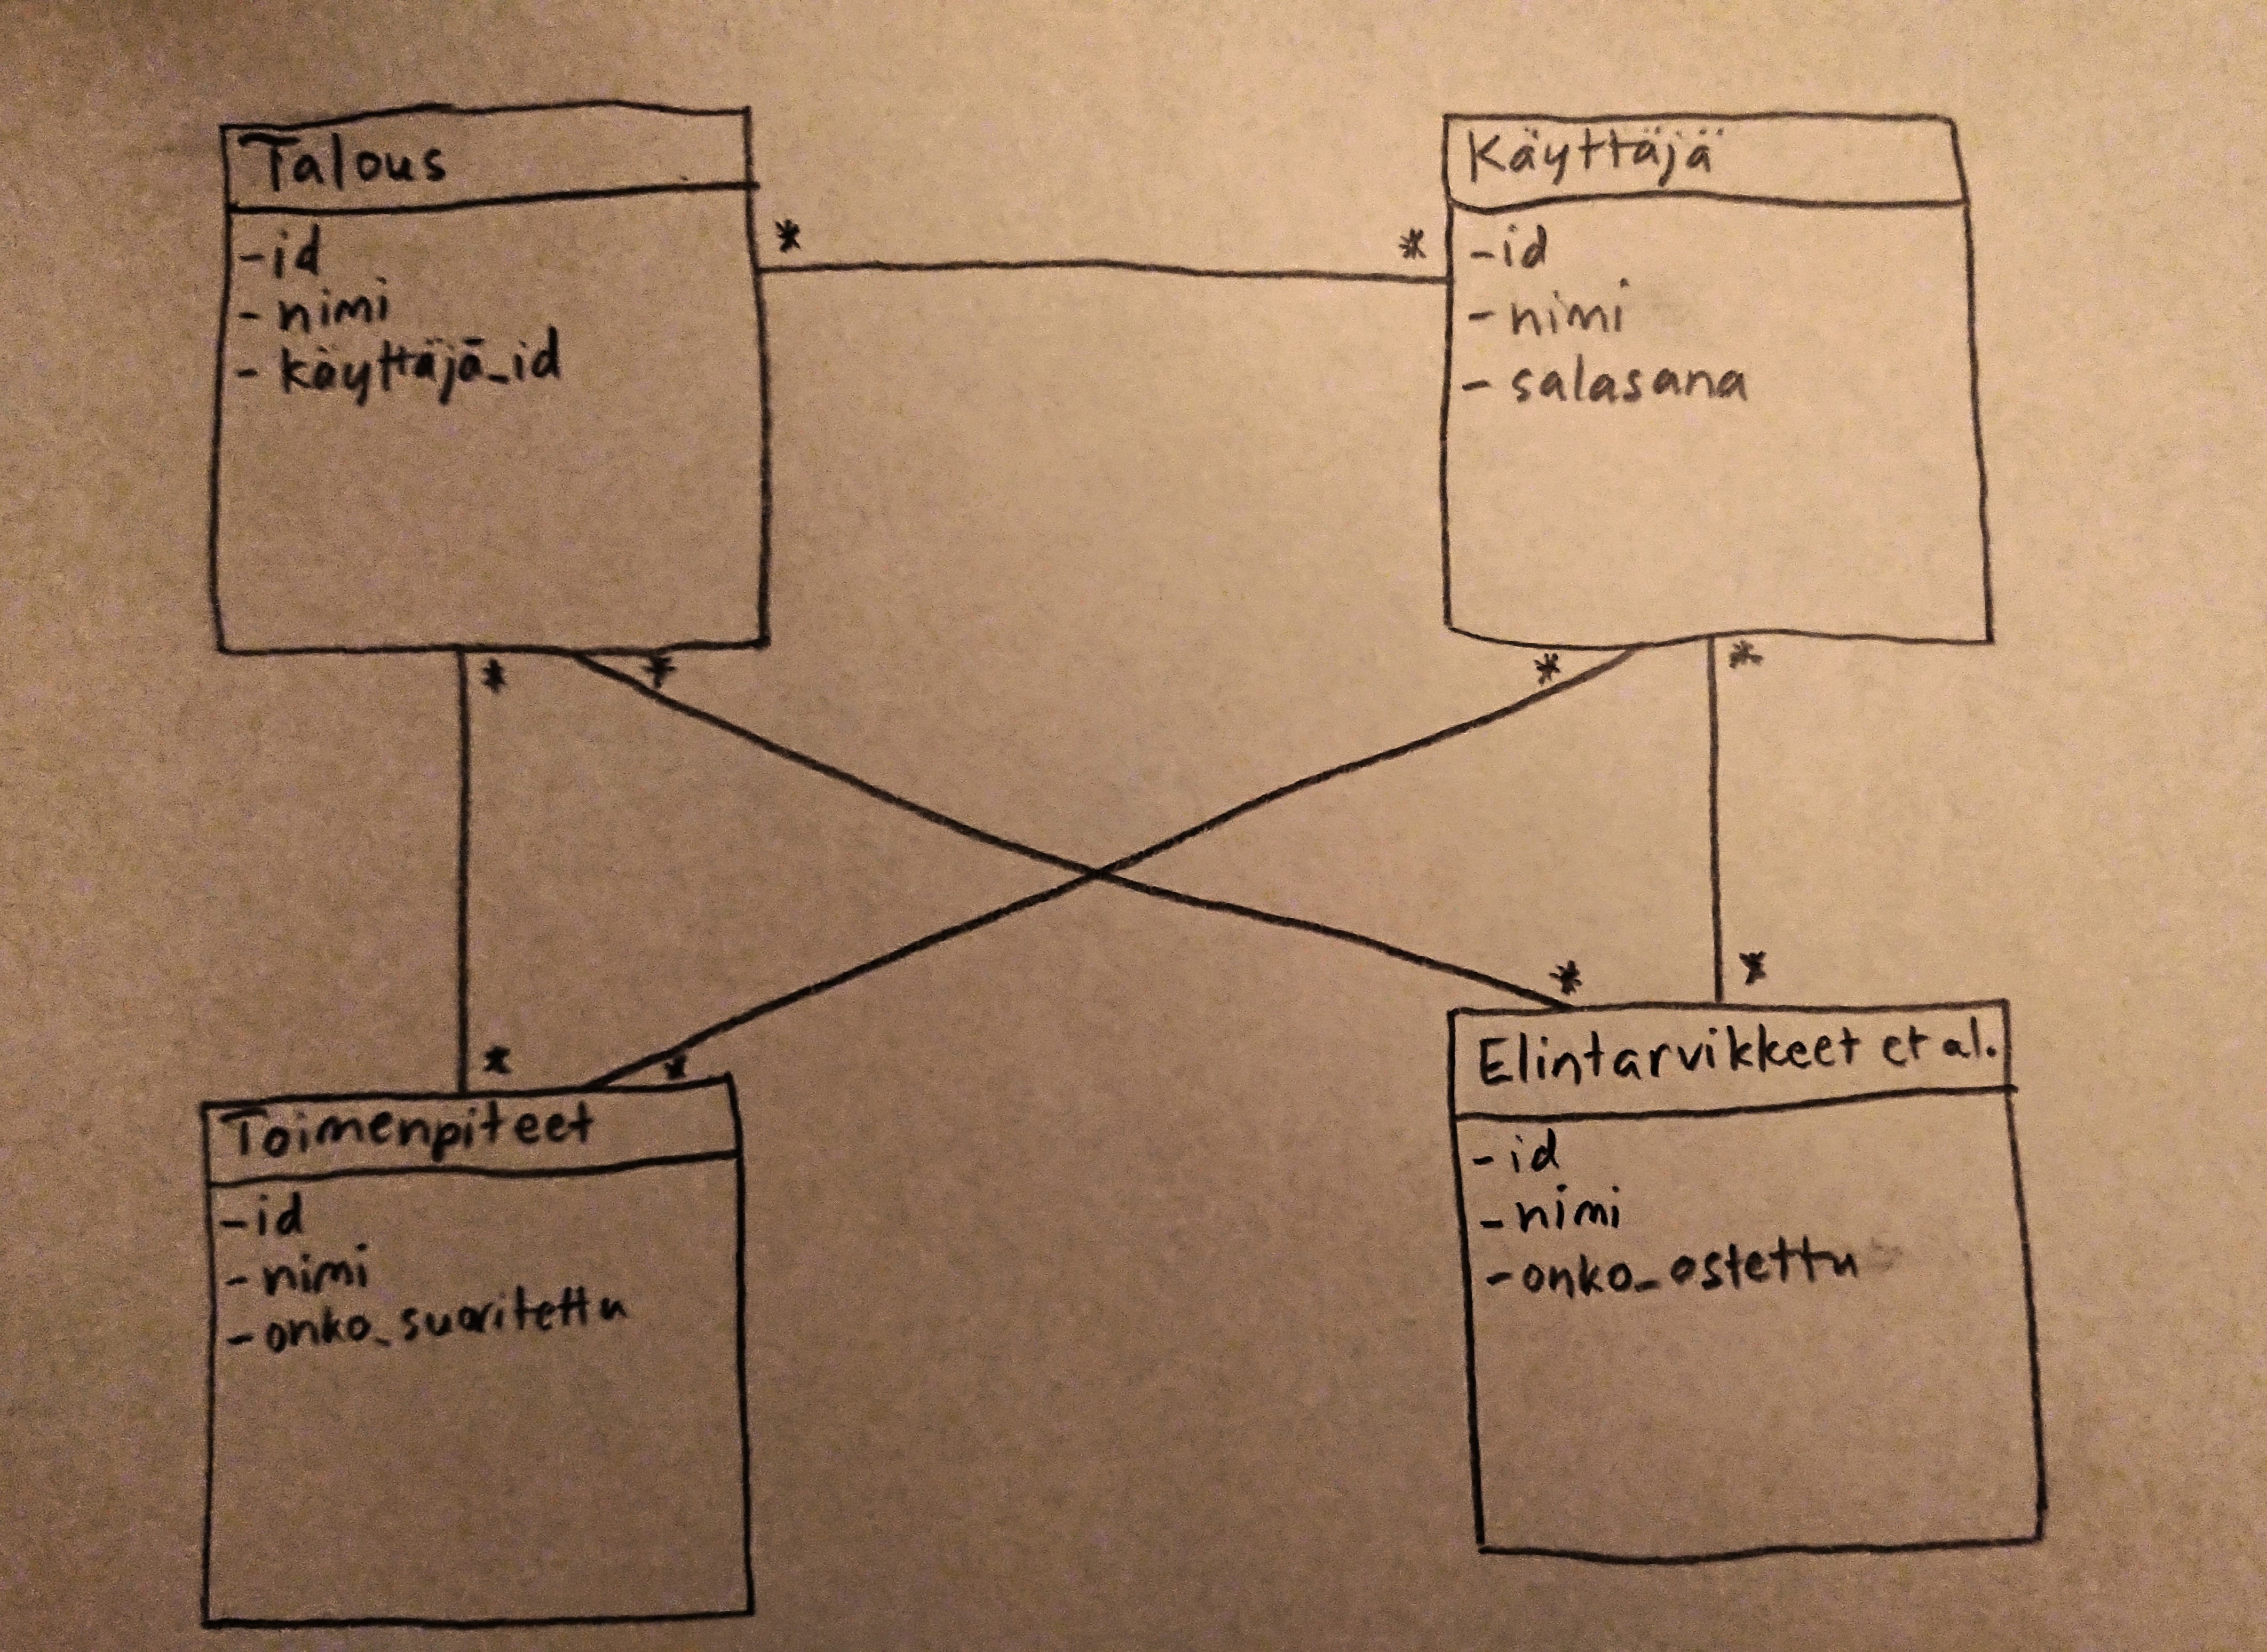 Talous
-id
- nimi
- käyttäjä_id
*
*
Käyttäjä
-id
- nimi
- salasana
*
*
*
*
*
*
*
*
Toimenpiteet
-id
- nimi
- onko_suoritettu
Elintarvikkeet et al.
- id
- nimi
- onko_ostettu